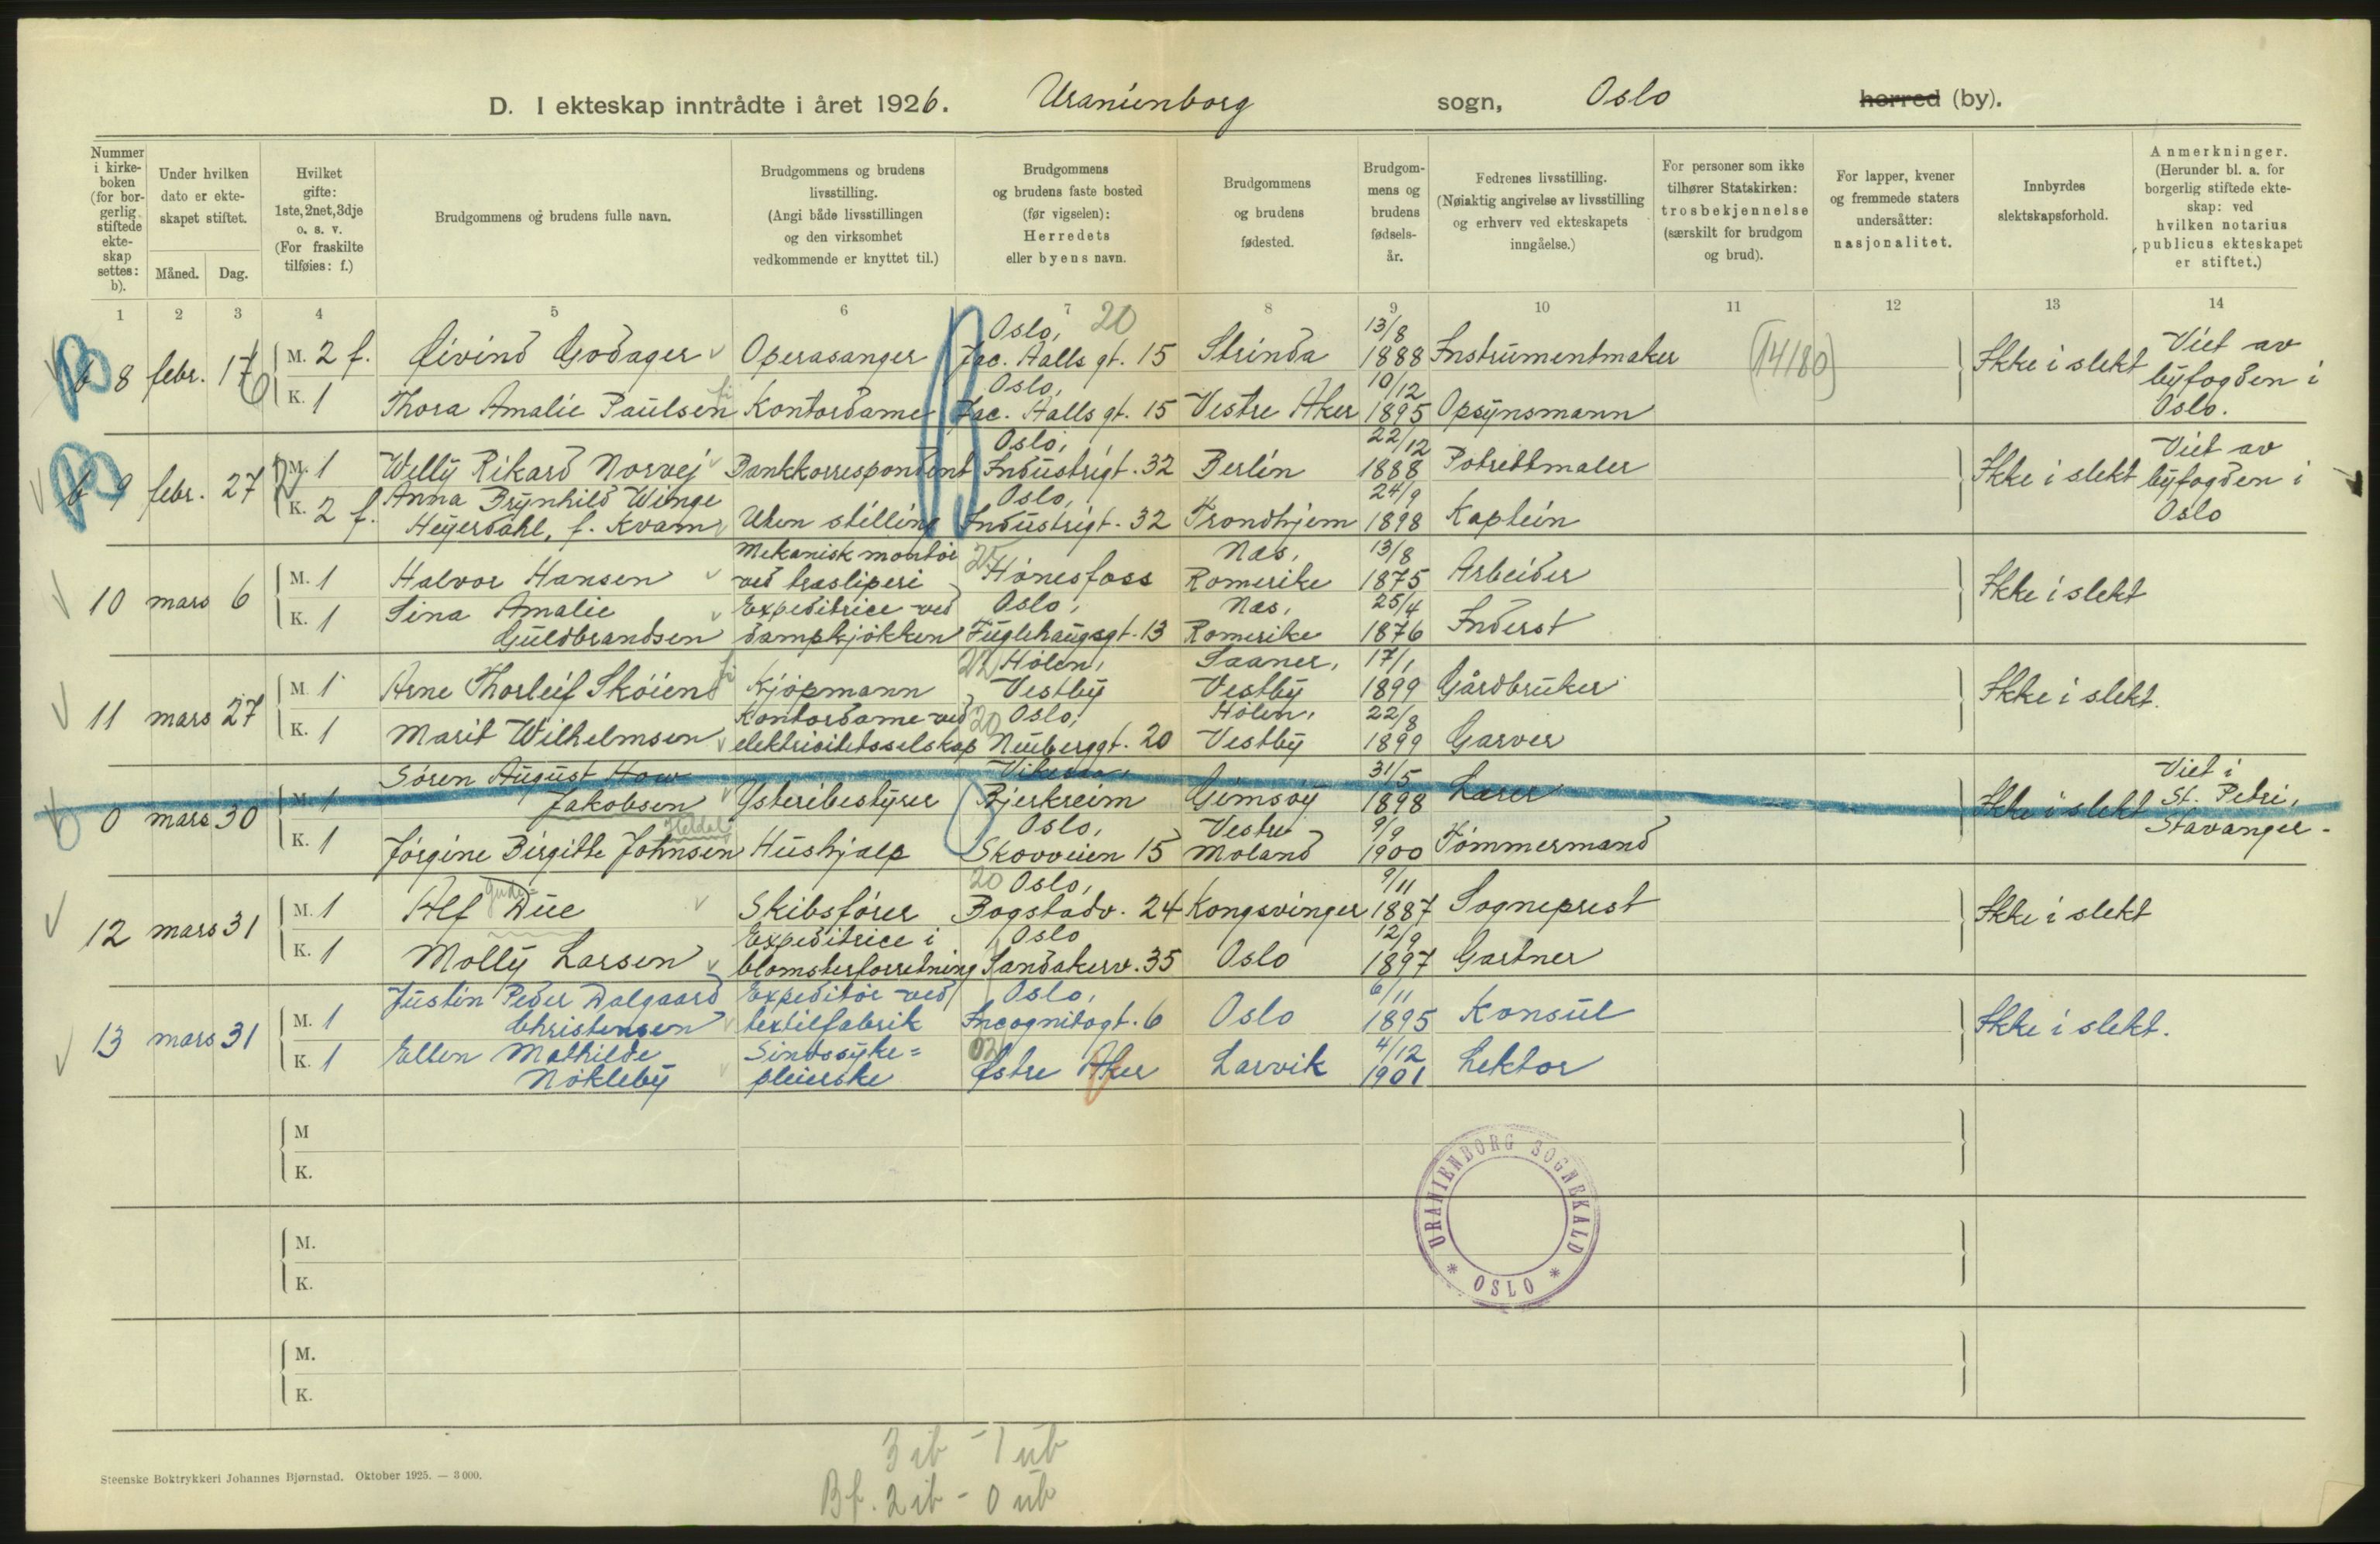 D. I ekteskap inntrådte i året 1926. Uranienborg sogn, Oslo herred (by).
Nummer i kirkeboken (for borgerlig stiftede ekteskap settes: b).
Under hvilken dato er ekteskapet stiftet.
Måned. Dag.
Hvilket gifte: 1ste, 2net, 3dje o. s. v. (For fraskilte tilføies: f.)
Brudgommens og brudens fulle navn.
Brudgommens og brudens livsstilling. (Angi både livsstillingen og den virksomhet vedkommende er knyttet til.)
Brudgommens og brudens faste bosted (før vigselen): Herredets eller byens navn.
Brudgommens og brudens fødested.
Brudgommens og brudens fødselsår.
Fedrenes livsstilling. (Nøiaktig angivelse av livsstilling og erhverv ved ekteskapets inngåelse.)
For personer som ikke tilhører Statskirken: trosbekjennelse (særskilt for brudgom og brud).
For lapper, kvener og fremmede staters undersåtter: nasjonalitet.
Innbyrdes slektskapsforhold.
Anmerkninger. (Herunder bl. a. for borgerlig stiftede ekteskap: ved hvilken notarius publicus ekteskapet er stiftet.)
1 2 3 4 5 6 7 8 9 10 11 12 13 14
20
b 8 febr. 17 M. 2 f. Øivind Godager Operasanger Oslo, Jac. Aalls gt. 15 Strinda 13/8 1888 Instrumentmaker (14180) Ikke i slekt Viet av byfogden i Oslo.
K. 1 Thora Amalie Paulsen Kontordame Oslo, Jac. Aalls gt. 15 Vestre Aker 10/12 1895 Opsynsmann
b 9 febr. 27 M. 1 Willy Rikard Norvej Bankkorrespondent Oslo, Industrigt. 32 Berlin 22/12 1888 Potrettmaler Ikke i slekt Viet av byfogden i Oslo
K. 2 f. Anna Brynhild Winge Heyerdahl, f. Kvam Uten stilling Oslo, Industrigt. 32 Trondhjem 24/9 1898 Kaptein
10 mars 6 M. 1 Halvor Hansen Mekanisk montør ved træsliperi Hønefoss Næs, Romerike 13/8 1875 Arbeider Ikke i slekt
K. 1 Lina Amalie Guldbrandsen Expeditrice ved dampkjøkken Oslo, Fuglehaugsgt. 13 Næs, Romerike 25/4 1876 Inderst
11 mars 27 M. 1 Arne Thorleif Skøien Kjøpmann Hølen, Vestby Saaner, Vestby 17/1 1899 Gårdbruker Ikke i slekt.
K. 1 Marit Wilhelmsen Kontordame ved elektrisitetsselskap 20 Oslo, Neuberggt. 20 Hølen, Vestby 22/8 1899 Garver
0 mars 30 M. 1 Søren August Jakobsen Ysteribestyrer Bjerkreim Gimsøy 31/5 1898 Lærer Ikke i slekt Viet i St. Petri, Stavanger.
K. 1 Jørgine Birgitte Johnsen Hushjælp Oslo, Skovveien 15 Vestre Moland 9/9 1900 Tømmermand
12 mars 31 M. 1 Alf Due Skibsfører 20 Oslo, Bogstadv. 24 Kongsvinger 9/11 1887 Sogneprest Ikke i slekt
K. 1 Molly Larsen Expeditrice i blomsterforretning Oslo Sandakerv. 35 Oslo 12/9 1897 Gartner
13 mars 31 M. 1 Justin Peder Dalgaard Christensen Expeditør ved textilfabrik Oslo, Incognitogt. 6 Oslo 6/11 1895 Konsul Ikke i slekt.
K. 1 Ellen Mathilde Nøkleby Sindssykepleierske 02 Østre Aker Larvik 4/12 1901 Lektor
M
K.
M.
K.
M.
K.
URANIENBORG SOGNEKALD * OSLO *
3 ib - 1 ub
Bf. 2 ib - 0 ub
Steenske Boktrykkeri Johannes Bjørnstad. Oktober 1925. — 3 000.